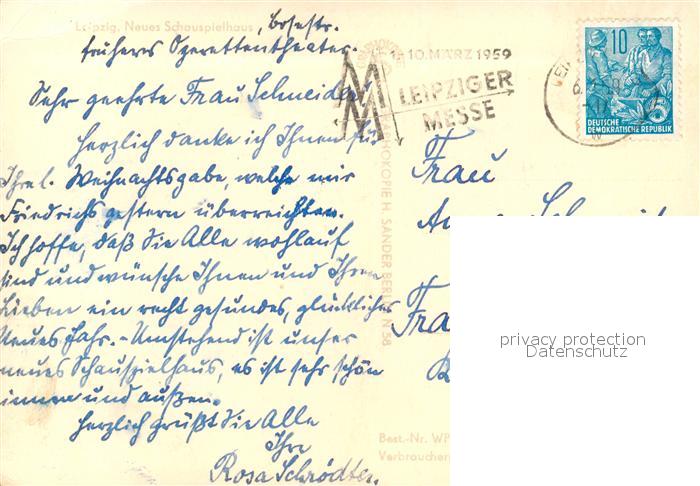 Leipzig, Neues Schauspielhaus, Bosestr.
früheres Operettentheater.
Sehr geehrte Frau Schneider!
Herzlich danke ich Ihnen für
Ihre l. Weihnachtsgabe, welche mir
Friedrichs gestern überreichten.
Ich hoffe, daß Sie Alle wohlauf
sind und wünsche Ihnen und Ihren
Lieben ein recht gesundes, glückliches
Neues Jahr. - Umstehend ist unser
neues Schauspielhaus, es ist sehr schön
innen und außen.
Herzlich grüßt Sie Alle
Ihre
Rosa Schrödter.
10. MÄRZ 1959
LEIPZIGER
MESSE
10
DEUTSCHE
DEMOKRATISCHE REPUBLIK
Frau
Frau
H. SANDER BERLIN N 58
Best.-Nr. WP
Verbraucherp
privacy protection
Datenschutz